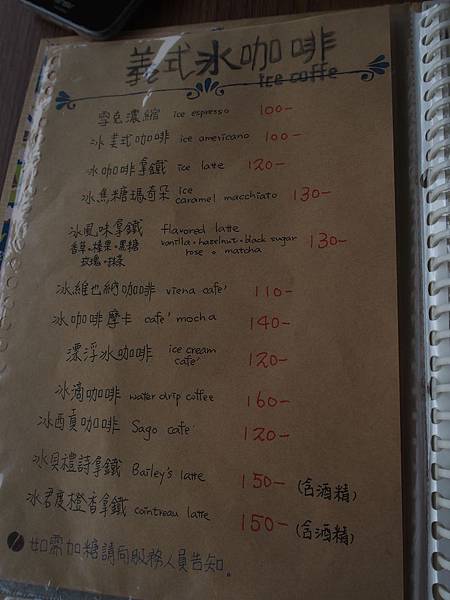 義式氷咖啡
Ice coffe
雪克濃縮 ice espresso 100-
冰美式咖啡 ice americano 100-
冰咖啡拿鐵 ice latte 120-
冰焦糖瑪奇朵 Ice caramel macchiato 130-
冰風味拿鐵 flavored latte
香草。榛果。黑糖 vanilla。hazelnut。black sugar 130-
玫瑰。抹茶 rose 。matcha
冰維也納咖啡 viena cafe' 110-
冰咖啡摩卡 cafe' mocha 140-
漂浮冰咖啡 ice cream cafe' 120-
冰滴咖啡 water drip coffee 160-
冰西貢咖啡 Sago cafe' 120-
冰貝禮詩拿鐵 Bailey's latte 150- (含酒精)
冰君度橙香拿鐵 cointreau latte 150- (含酒精)
如需加糖請向服務人員告知。